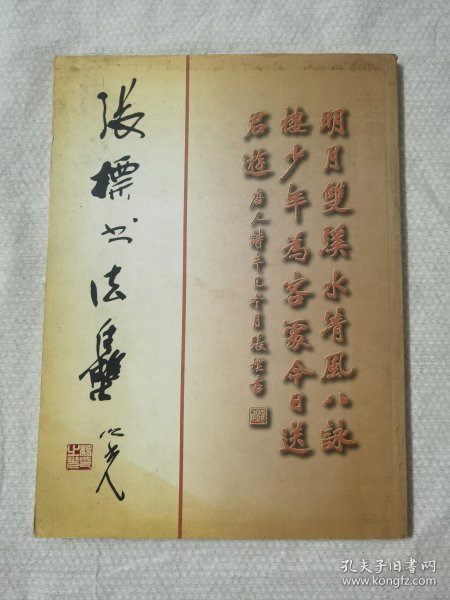 張標书法集
明月雙溪水清風八詠
樓少年為客處今日送
君遊
唐人詩辛巳冬月張標書
孔夫子旧书网
www.kongfz.com